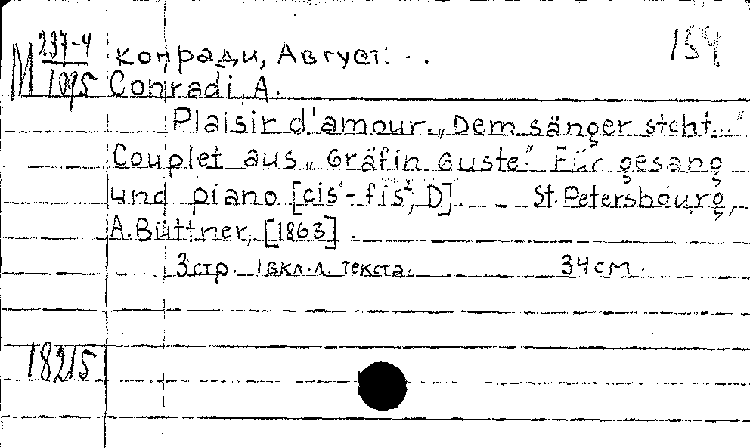 M 237-4 Конради, Август. 154
1095 Conradi A.
Plaisir d'amour. „Dem sänger steht..."
Couplet aus „Gräfin Guste." Für gesang
und piano [cis¹-fis², D]. - St. Petersbourg,
A. Büttner, [1863].
3 стр. 1 вкл. л. текста. 34 см.
18215